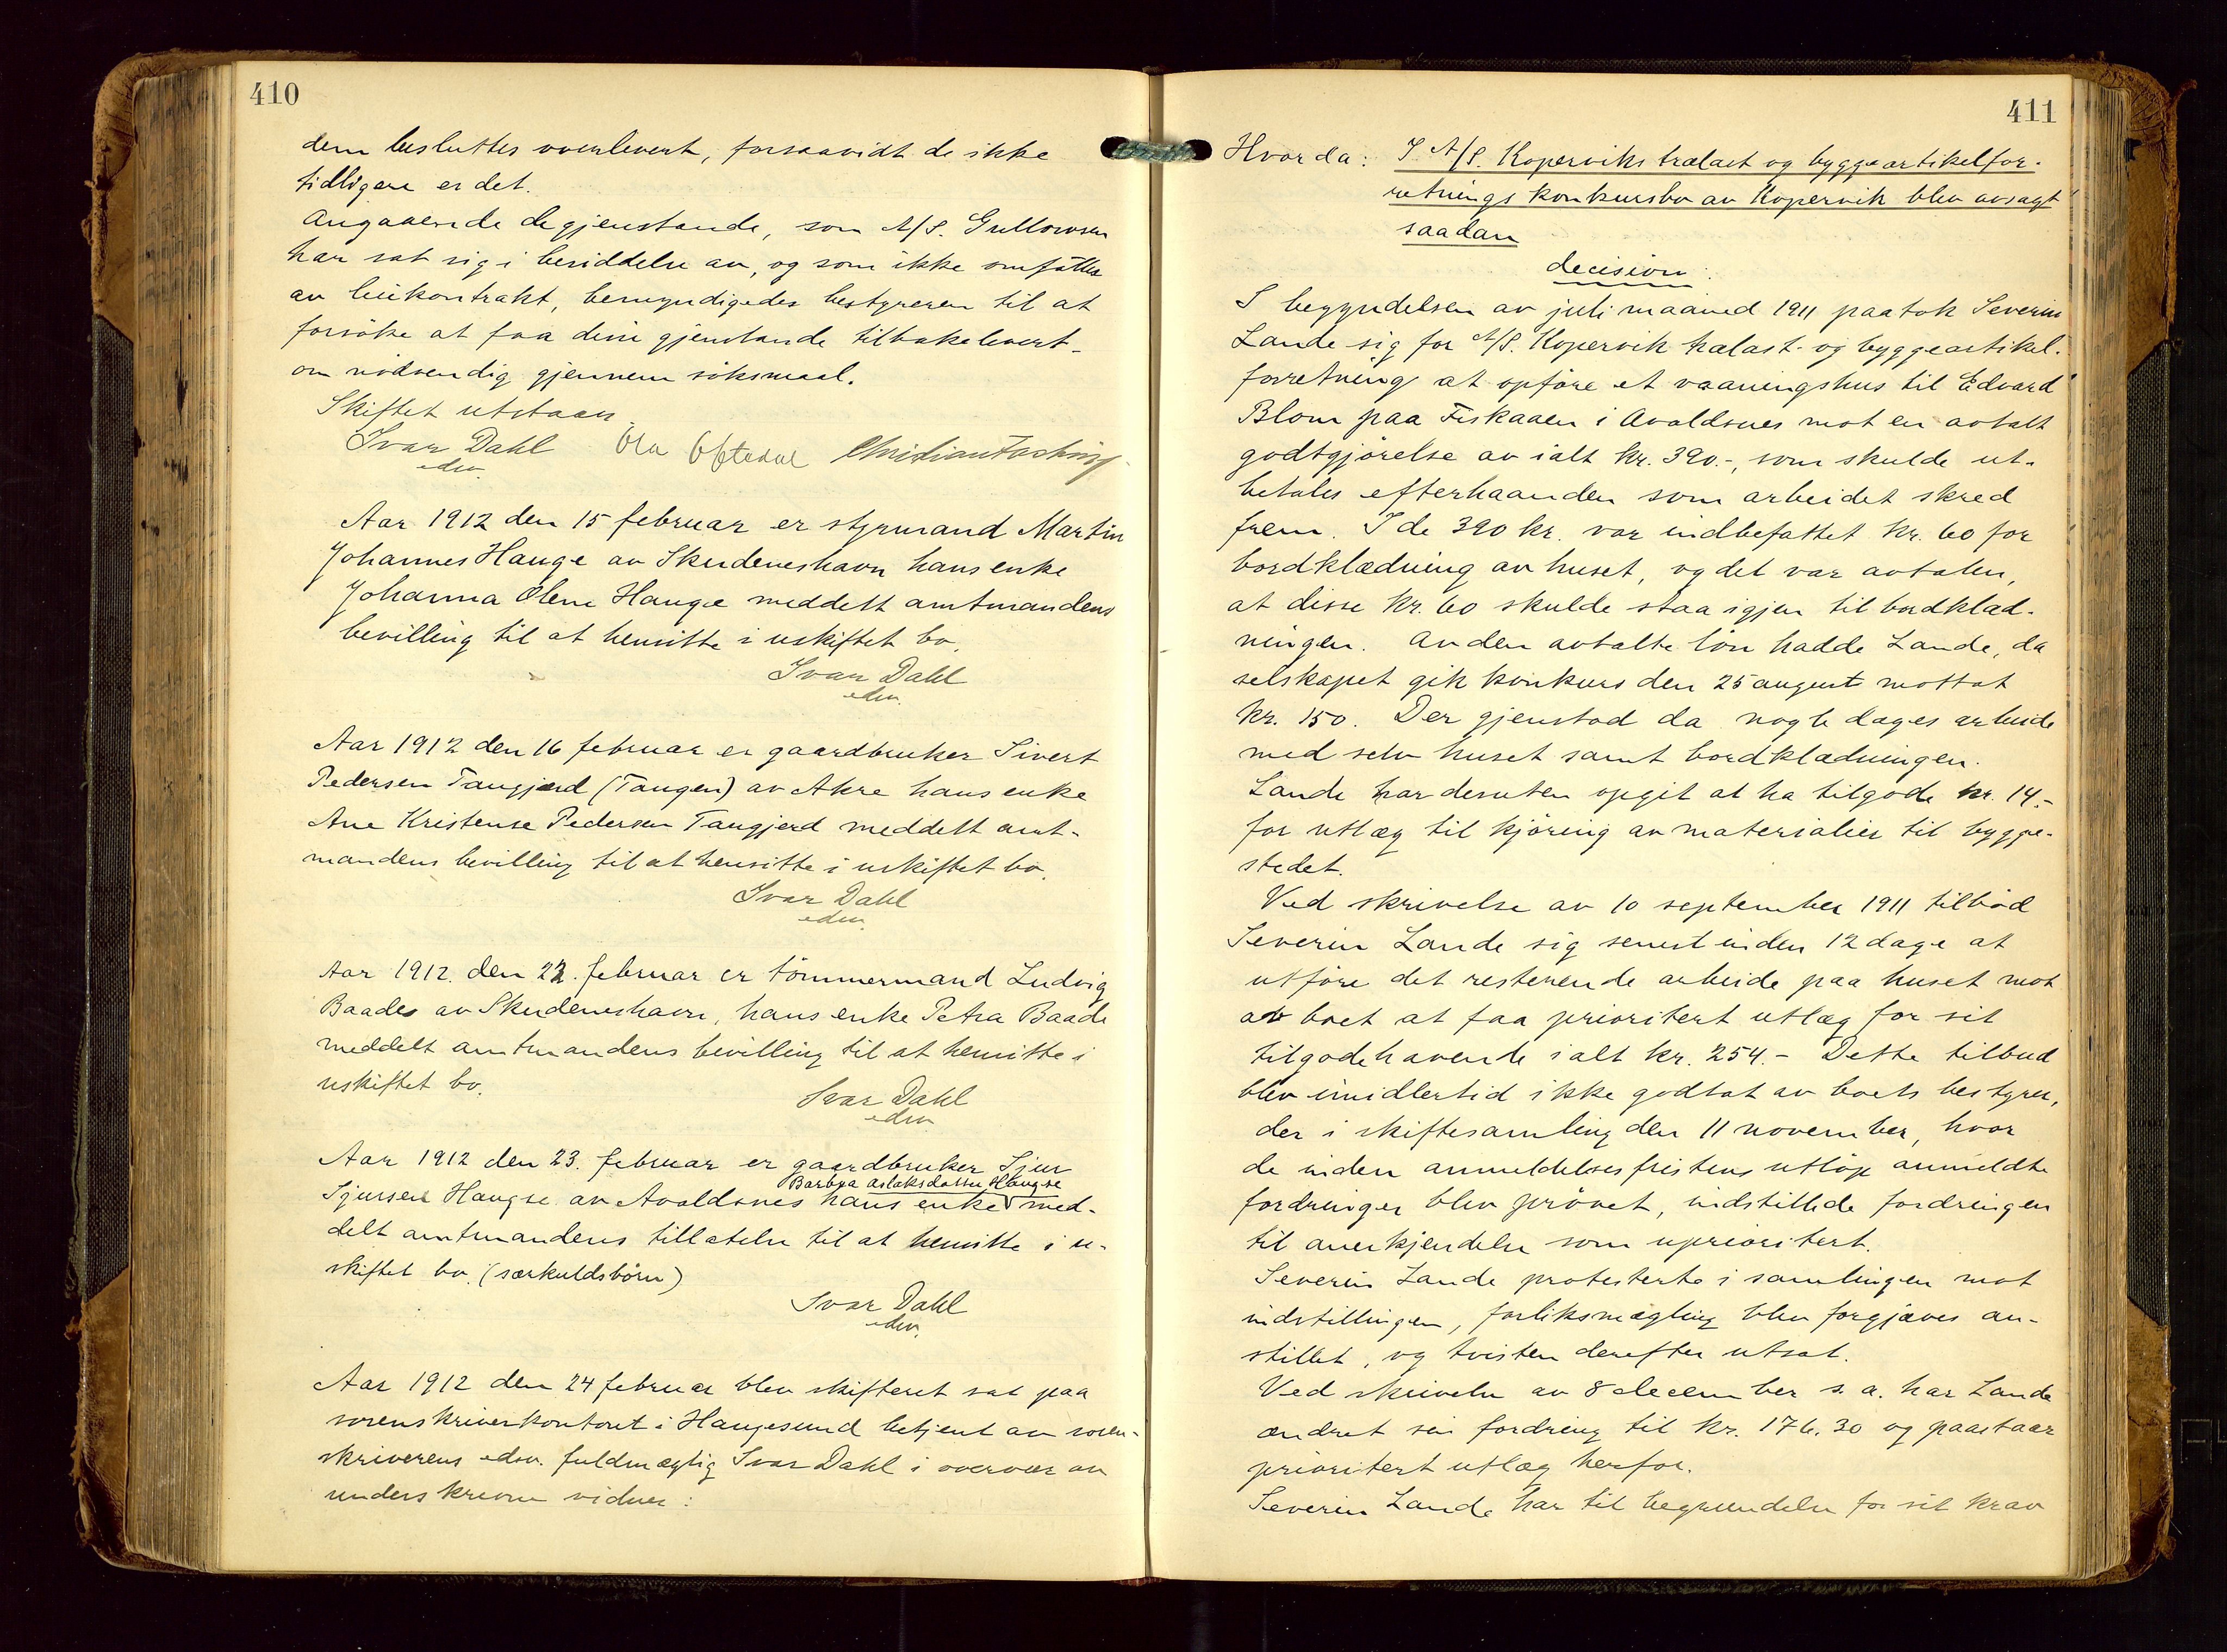 410
dem besluttes overlevert, forsaavidt de ikke
tidligere er det.
Angaaende de gjenstande, som A/S. Gullowsen
har sat sig i besiddelse av, og som ikke omfattes
av leiekontrakt, bemyndigedes bestyreren til at
forsöke at faa disse gjenstande tilbakelevert -
om nödvendig gjennem söksmaal.
Skiftet utstaar.
Ivar Dahl Ola Oftedal Christian
edsv.
Aar 1912 den 15 februar er styrmand Martin
Johannes Hauge av Skudeneshavn hans enke
Johanna Olene Hauge meddelt amtmandens
bevilling til at hensitte i uskiftet bo.
Ivar Dahl
edsv.
Aar 1912 den 16 februar er gaardbruker Sivert
Pedersen Tangjerd (Tangen) av Akre hans enke
Ane Kristense Pedersen Tangjerd meddelt amt-
mandens bevilling til at hensitte i uskiftet bo.
Ivar Dahl
edsv.
Aar 1912. den 22. februar er tömmermand Ludvig
Baades av Skudeneshavn, hans enke Petra Baade
meddelt amtmandens bevilling til at hensitte i
uskiftet bo.
Ivar Dahl
edsv.
Aar 1912 den 23. februar er gaardbruker Sjur
Barbra Aslaksdatter Haugse
Sjursen Haugse av Avaldsnes hans enke med-
delt amtmandens tillatelse til at hensitte i u-
skiftet bo. (særkuldsbörn)
Ivar Dahl
edsv.
Aar 1912 den 24 februar blev skifteret sat paa
sorenskriverkontoret i Haugesund betjent av soren-
skriverens edsv. fuldmægtig Ivar Dahl i overvær av
underskrevne vidner:
411
Hvorda: I A/S. Koperviks trælast og byggeartikelfor-
retnings konkursbo av Kopervik blev avsagt
saadan
decision:
I begyndelsen av juli maaned 1911 paatok Severin
Lande sig for A/S. Kopervik trælast- og byggeartikel-
forretning at opföre et vaaningshus til Edvard
Blom paa Fiskaaen i Avaldsnes mot en avtalt
godtgjörelse av ialt kr. 390.-, som skulde ut-
betales efterhaanden som arbeidet skred
frem. I de 390 kr. var indbefattet kr. 60 for
bordklædning av huset, og det var avtalen,
at disse kr. 60 skulde staa igjen til bordklæd-
ningen. Av den avtalte lön hadde Lande, da
selskapet gik konkurs den 25 august mottat
kr. 150. Der gjenstod da nogle dages arbeide
med selv huset samt bordklædningen.
Lande har desuten opgit at ha tilgode kr. 14.-
for utlæg til kjöring av materialier til bygge-
stedet.
Ved skrivelse av 10 september 1911 tilböd
Severin Lande sig senest inden 12 dage at
utföre det resterende arbeide paa huset mot
av boet at faa prioritert utlæg for sit
tilgodehavende ialt kr. 254.- Dette tilbud
blev imidlertid ikke godtat av boets bestyrer,
der i skiftesamling den 11 november, hvor
de inden anmeldelsesfristens utlöp anmeldte
fordringer blev prövet, indstillede fordringen
til anerkjendelse som uprioritert.
Severin Lande protesterte i samlingen mot
indstillingen, forliksmægling blev forgjæves an-
stillet, og tvisten derefter utsat.
Ved skrivelse av 8 december s. a. har Lande
ændret sin fordring til kr. 176.30 og paastaar
prioritert utlæg herfor.
Severin Lande har til begrundelse for sit krav